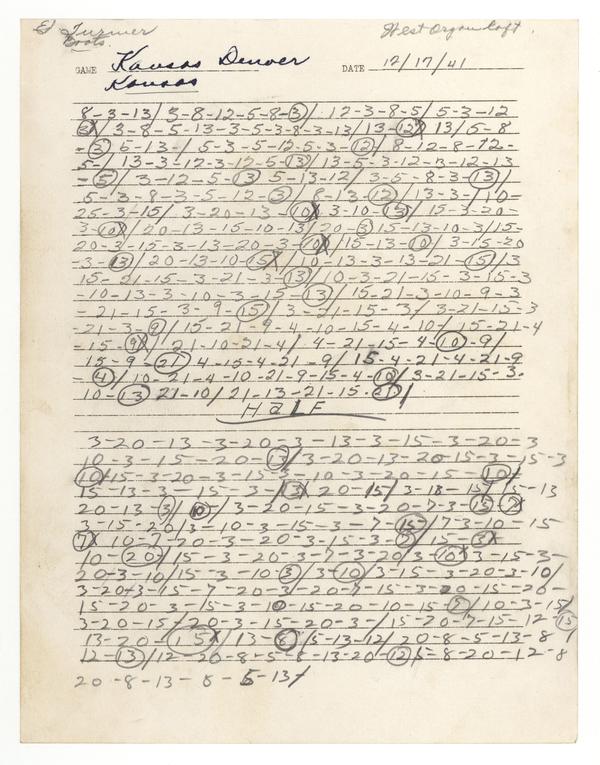 Ed Turner West Organ Loft.
Boots.
GAME Kansas Denver DATE 12/17/41
Kansas
8-3-13/ 3-8-12-5-8-3/ 12-3-8-5/ 5-3-12
3X/ 3-8-5-13-3-5-3-8-3-13/ 13-12X 13/ 5-8
-3 5-13-/ 5-3-5-12-5-3-12/ 8-12-8-12-
5-/ 13-3-12-3-12-5-13/ 13-5-3-12-3-12-13
-5/ 3-12-5-13 5-13-12/ 3-5-8-3-13/
5-3-8-3-5-12-3/ 8-13-12/ 13-3-/ 10-
25-3-15/ 3-20-13-10X 3-10-13/ 15-3-20-
3-10X/ 20-13-15-10-13/ 20-3 15-13-10-3/15-
20-3-15-3-13-20-3-10X/ 15-13-10/ 3-15-20
-3-13/ 20-13-10 15X/ 10-13-3-13-21-15/ 13
15-21-15-3-21-3-13/ 10-3-21-15-3-15-3
-10-13-3-10-3-15-13/ 15-21-3-10-9-3
-21-15-3-9-15/ 3-21-15-3/ 3-21-15-3
-21-3-9/ 15-21-9-4-10-15-4-10/ 15-21-4
-15-9X/ 21-10-21-4/ 4-21-15-4-10-9/
15-9-21 4-15-4-21-9/ 15-4-21-4-21-9
-4/ 10-21-4-10-21-9-15-4-10/ 3-21-15-3-
10-13 21-10/ 21-13-21-15-21/
HALF
3-20-13-3-20-3-13-3-15-3-20-3
10-3-15-20-13/ 3-20-13-20-15-3-15-3
10/15-3-20-3-15-3-10-3-20-15-10/
15-13-3-15-3-/13X 20-15/ 3-18-15/ 15-13
20-13-3/ 10-/ 3-20-15-3-20-7-3-15-7X
3-15-20/3-10-3-15-3-7-15-/ 7-3-10-15
7X 10-7-20-3-20-3-15-3-7-15-3X
10-20/ 15-3-20-3-7-3-20/3-10X 3-15-3-
20-3-10/15-3-10-3/3-10/3-15-3-20-3-10/
3-20-3-15-7-20-3-20-7-15-3-20-15-20-
15-20-3-15-3-10-15-20-10-15-7/ 10-3-15/
3-20-15/ 20-3-15-20-3-/ 15-20-7-15-12 15
13-20-15X/ 13-8/ 5-13-12/ 20-8-5-13-8/
12-13/12-20-8-5-8-13-20-12 5-8-20-12-8
20-8-13-8-5-13/